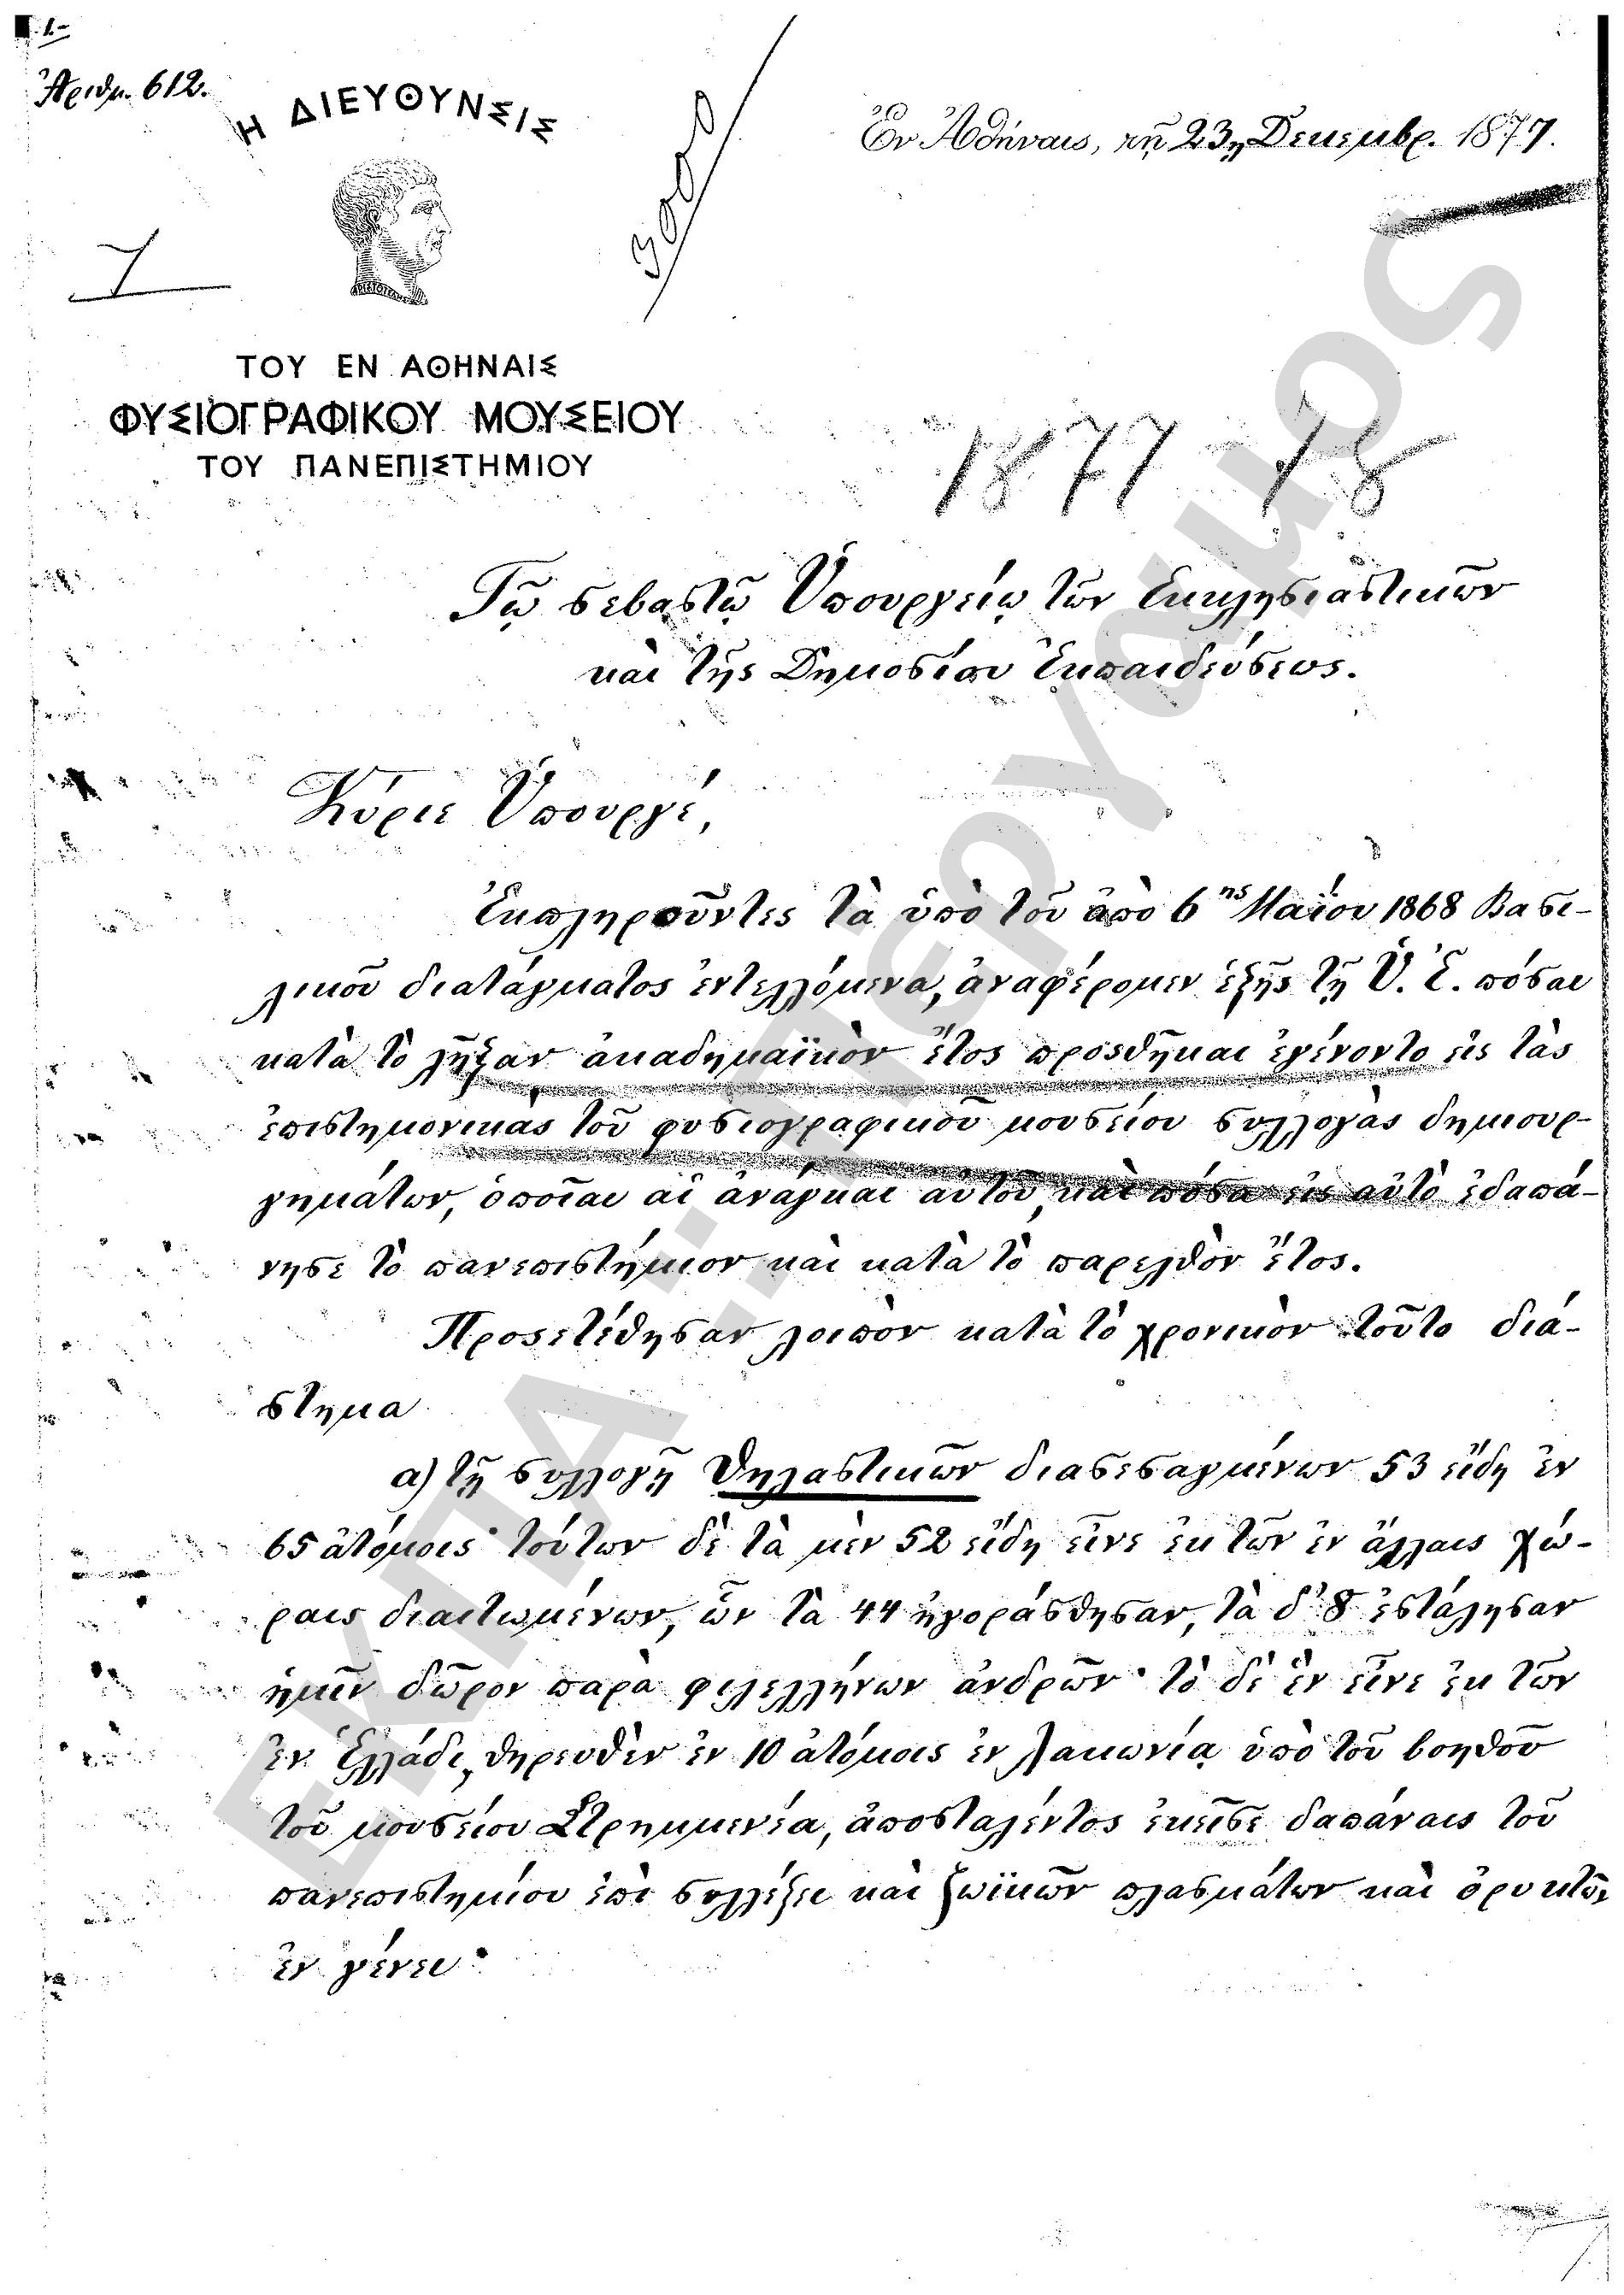 1.-
Ἀριθμ. 612.
Η ΔΙΕΥΘΥΝΣΙΣ
Ἐν Ἀθήναις, τῇ 23ῃ Δεκεμβρ. 1877.
ΤΟΥ ΕΝ ΑΘΗΝΑΙΣ
ΦΥΣΙΟΓΡΑΦΙΚΟΥ ΜΟΥΣΕΙΟΥ
ΤΟΥ ΠΑΝΕΠΙΣΤΗΜΙΟΥ
1877 - 78
Τῷ σεβαστῷ Ὑπουργείῳ τῶν Ἐκκλησιαστικῶν
καὶ τῆς Δημοσίου Ἐκπαιδεύσεως.
Κύριε Ὑπουργέ,
Ἐκπληροῦντες τὰ ὑπὸ τοῦ ἀπὸ 6ης Μαΐου 1868 Βασι-
λικοῦ διατάγματος ἐντελλόμενα, ἀναφέρομεν ἑξῆς τῇ Ὑ. Ἐ. πόσαι
κατὰ τὸ λῆξαν ἀκαδημαϊκὸν ἔτος προσθῆκαι ἐγένοντο εἰς τὰς
ἐπιστημονικὰς τοῦ φυσιογραφικοῦ μουσείου συλλογὰς δημιουρ-
γημάτων, ὁποῖαι αἱ ἀνάγκαι αὐτοῦ, καὶ πόσα εἰς αὐτὸ ἐδαπά-
νησε τὸ πανεπιστήμιον καὶ κατὰ τὸ παρελθὸν ἔτος.
Προσετέθησαν λοιπὸν κατὰ τὸ χρονικὸν τοῦτο διά-
στημα
α) τῇ συλλογῇ θηλαστικῶν διασεσαγμένων 53 εἴδη ἐν
65 ἀτόμοις· τούτων δὲ τὰ μὲν 52 εἴδη εἶνε ἐκ τῶν ἐν ἄλλαις χώ-
ραις διαιτωμένων, ὧν τὰ 44 ἠγοράσθησαν, τὰ δ' 8 ἐστάλησαν
ἡμῖν δῶρον παρὰ φιλελλήνων ἀνδρῶν· τὸ δὲ ἓν εἶνε ἐκ τῶν
ἐν Ἑλλάδι, θηρευθὲν ἐν 10 ἀτόμοις ἐν Λακωνίᾳ ὑπὸ τοῦ βοηθοῦ
τοῦ μουσείου Στρημμενέα, ἀποσταλέντος ἐκεῖσε δαπάναις τοῦ
πανεπιστημίου ἐπὶ συλλέξει καὶ ζωϊκῶν πλασμάτων καὶ ὀρυκτῶν
ἐν γένει·
ΕΚΠΑ - Περγαμος